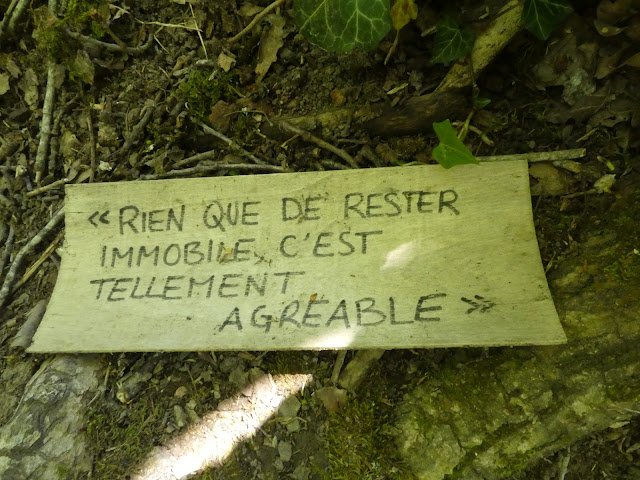 « RIEN QUE DE RESTER
IMMOBILE, C'EST
TELLEMENT
AGRÉABLE »